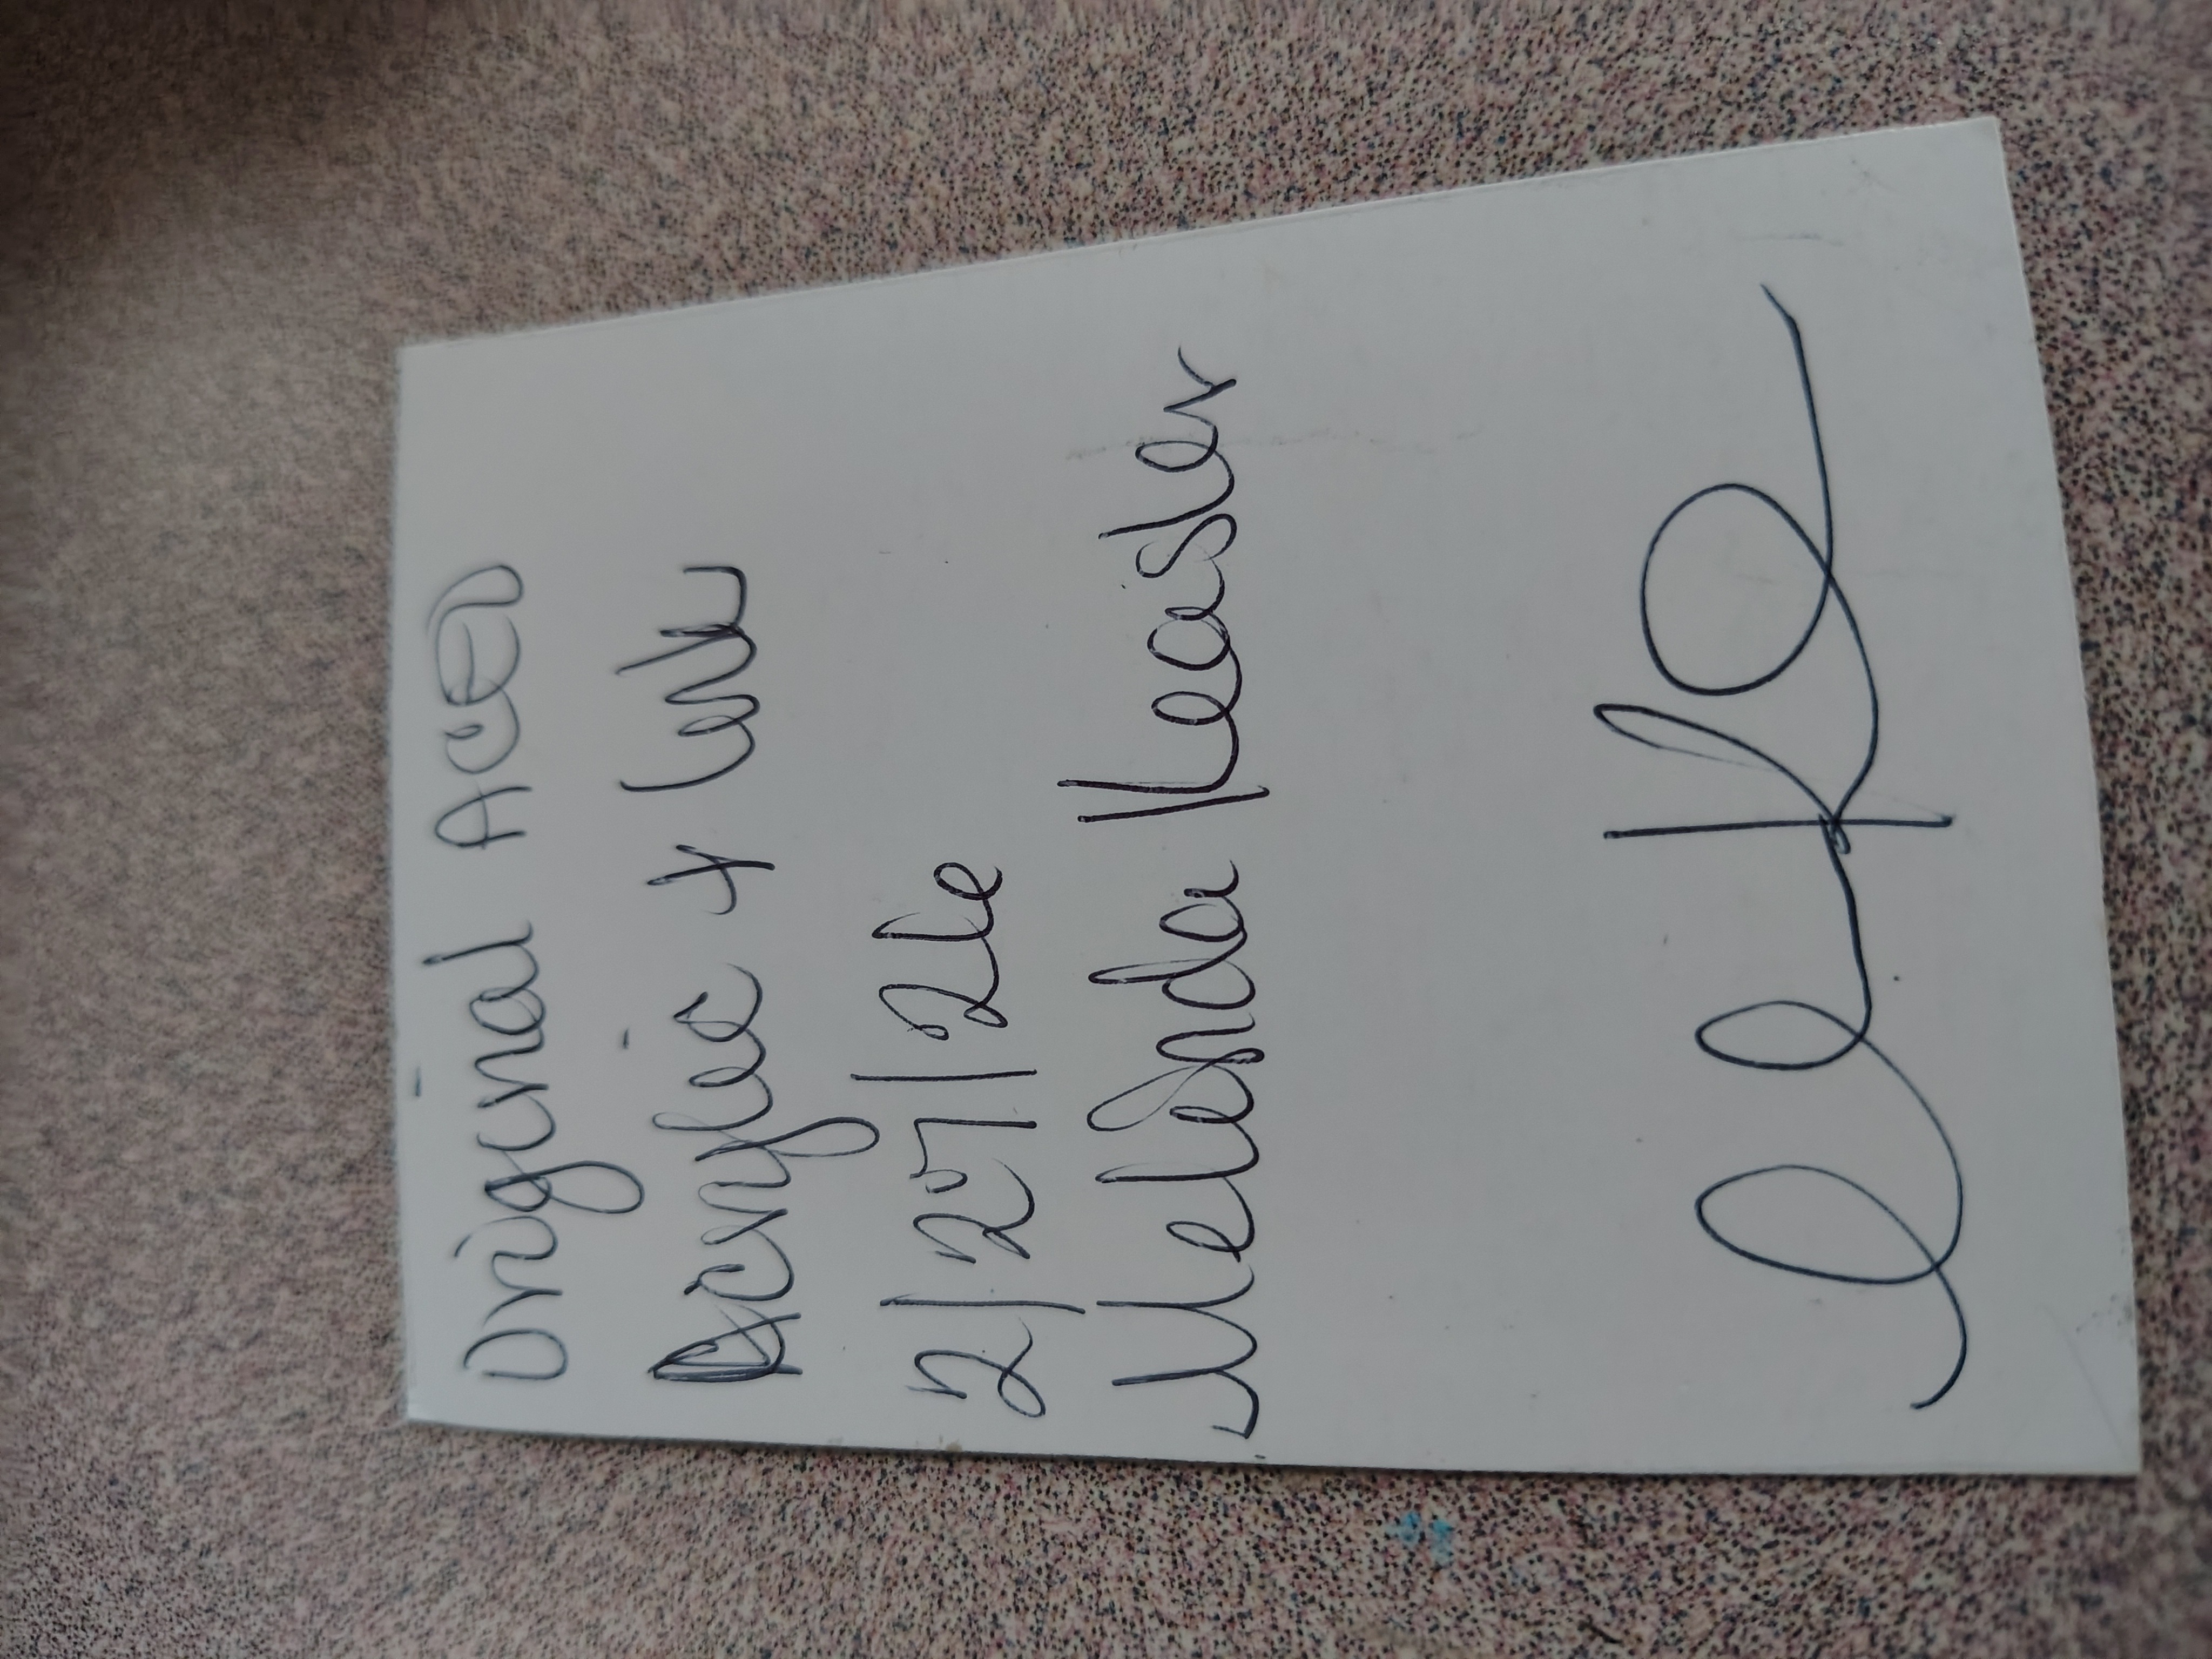 Original ACEO
Acrylic + Ink
2/27/26
Melinda Keasler